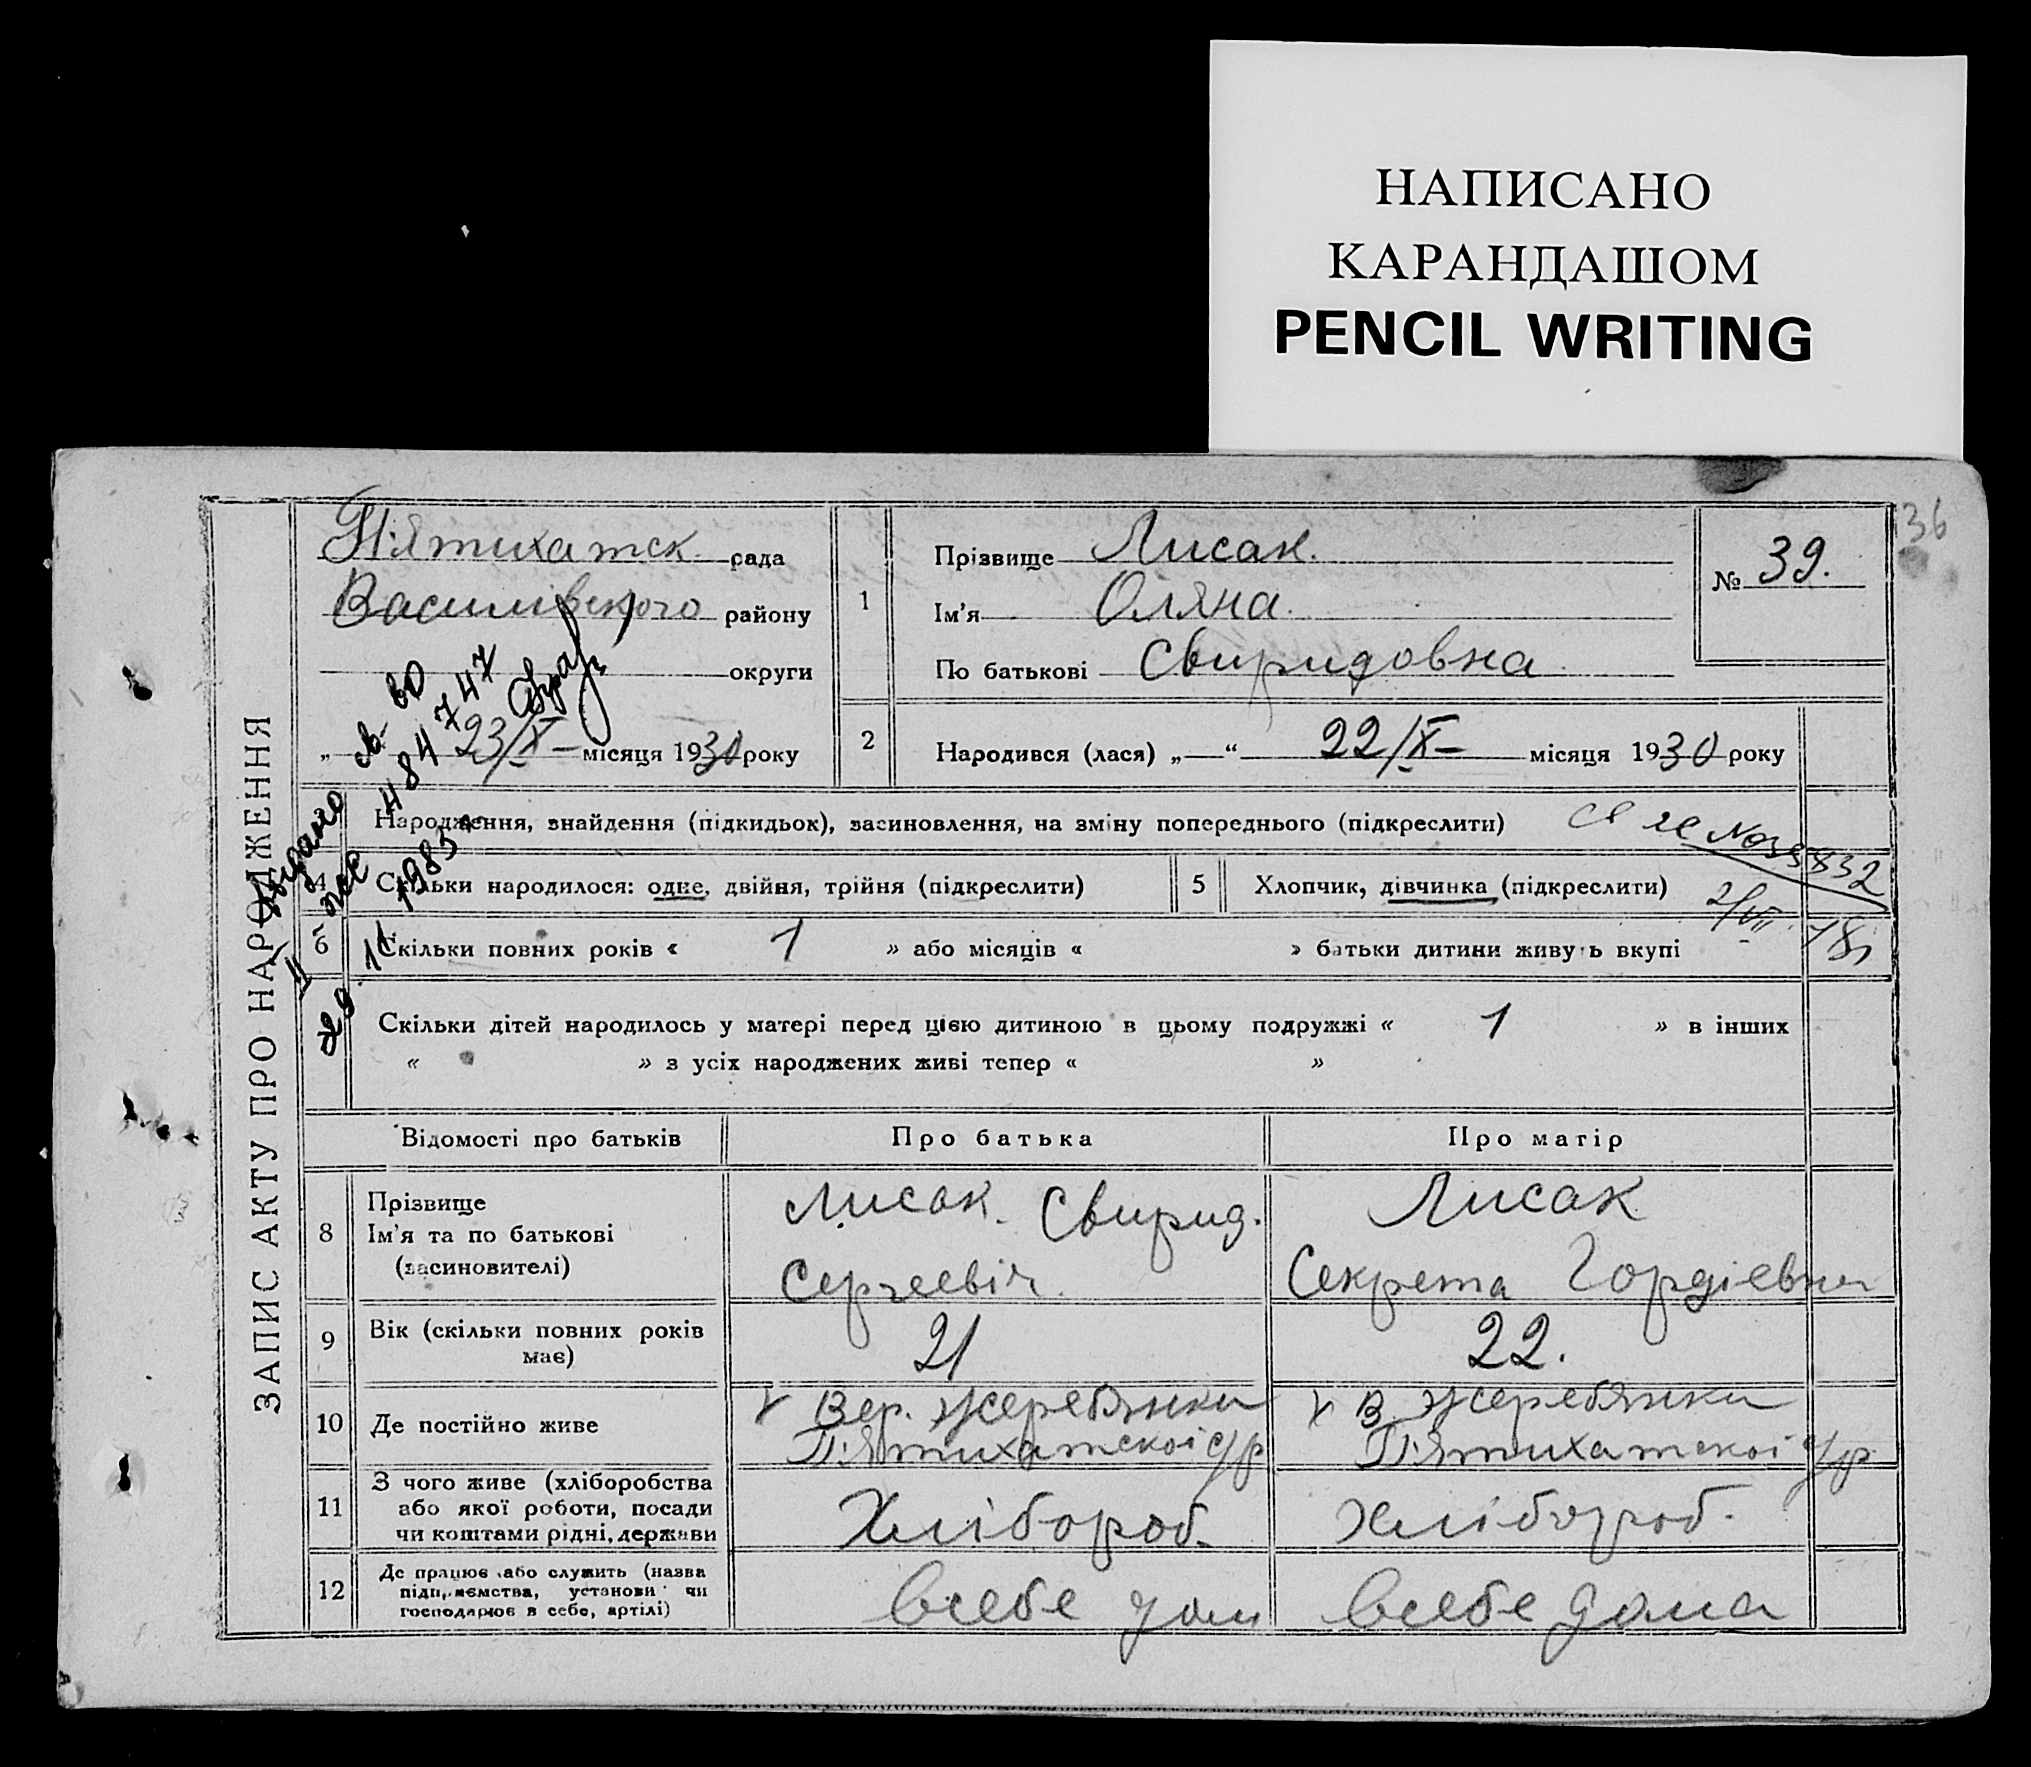 НАПИСАНО
КАРАНДАШОМ
PENCIL WRITING
36
ЗАПИС АКТУ ПРО НАРОДЖЕННЯ
П'ятихатск рада
Василівского району
округи
„ 23/X- місяця 1930 року
1
Прізвище Лисак.
Ім'я Оляна.
По батькові Свиридовна
№ 39.
2
Народився (лася) „—“ 22/X- місяця 1930 року
Народження, знайдення (підкидьок), засиновлення, на зміну попереднього (підкреслити)
4 Скільки народилося: одне, двійня, трійня (підкреслити)
5 Хлопчик, дівчинка (підкреслити)
6 Скільки повних років « 1 » або місяців « » батьки дитини живуть вкупі
Скільки дітей народилось у матері перед цією дитиною в цьому подружжі « 1 » в інших
« » з усіх народжених живі тепер « »
Видано
484747
1983
2/VII 78
Відомості про батьків Про батька Про матір
8 Прізвище
Ім'я та по батькові
(засиновителі)
Лисак. Свирид.
Сергеевіч.
Лисак
Секрета Гордіевна
9 Вік (скільки повних років
має)
21
22.
10 Де постійно живе
х Вер. Жеребянки
П'ятихатскоі с/р
х В. Жеребянки
П'ятихатскоі с/р
11 З чого живе (хліборобства
або якої роботи, посади
чи коштами рідні, держави
Хлібороб.
Хлібороб.
12 Де працює або служить (назва
підприємства, установи чи
господарює в себе, артілі)
всебе дом
всебе дома